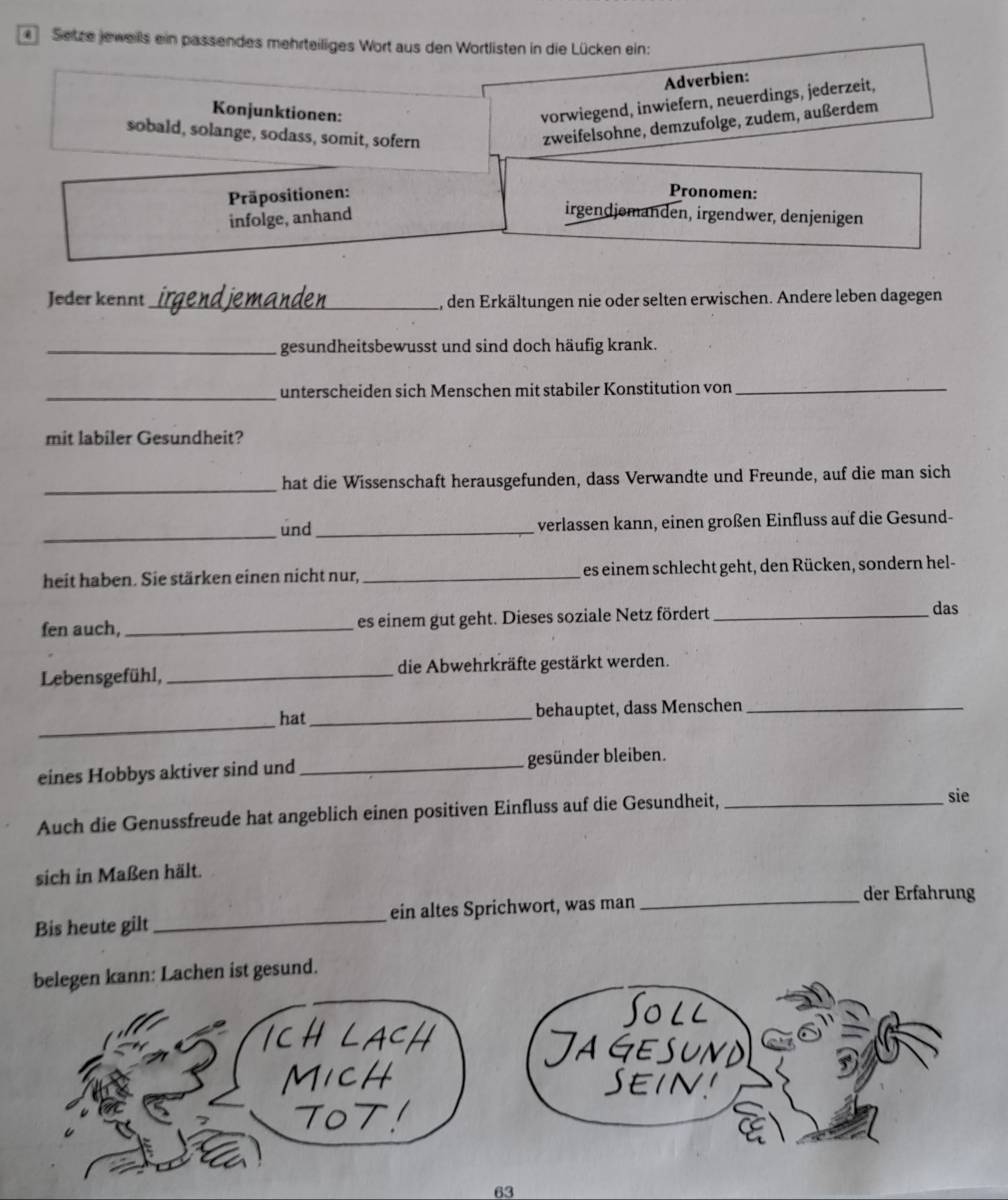 4 Setze jeweils ein passendes mehrteiliges Wort aus den Wortlisten in die Lücken ein:
Konjunktionen:
sobald, solange, sodass, somit, sofern
Adverbien:
vorwiegend, inwiefern, neuerdings, jederzeit,
zweifelsohne, demzufolge, zudem, außerdem
Präpositionen:
infolge, anhand
Pronomen:
irgendjemanden, irgendwer, denjenigen
Jeder kennt irgendjemanden, den Erkältungen nie oder selten erwischen. Andere leben dagegen
gesundheitsbewusst und sind doch häufig krank.
unterscheiden sich Menschen mit stabiler Konstitution von
mit labiler Gesundheit?
hat die Wissenschaft herausgefunden, dass Verwandte und Freunde, auf die man sich
und verlassen kann, einen großen Einfluss auf die Gesund-
heit haben. Sie stärken einen nicht nur, es einem schlecht geht, den Rücken, sondern hel-
fen auch, es einem gut geht. Dieses soziale Netz fördert das
Lebensgefühl, die Abwehrkräfte gestärkt werden.
hat behauptet, dass Menschen
eines Hobbys aktiver sind und gesünder bleiben.
Auch die Genussfreude hat angeblich einen positiven Einfluss auf die Gesundheit, sie
sich in Maßen hält.
Bis heute gilt ein altes Sprichwort, was man der Erfahrung
belegen kann: Lachen ist gesund.
ICH LACH
MICH
TOT!
SOLL
JA GESUND
SEIN!
63